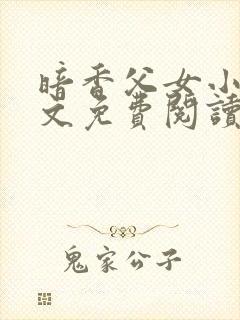 暗香父女小
文免費閱讀
鬼家公子